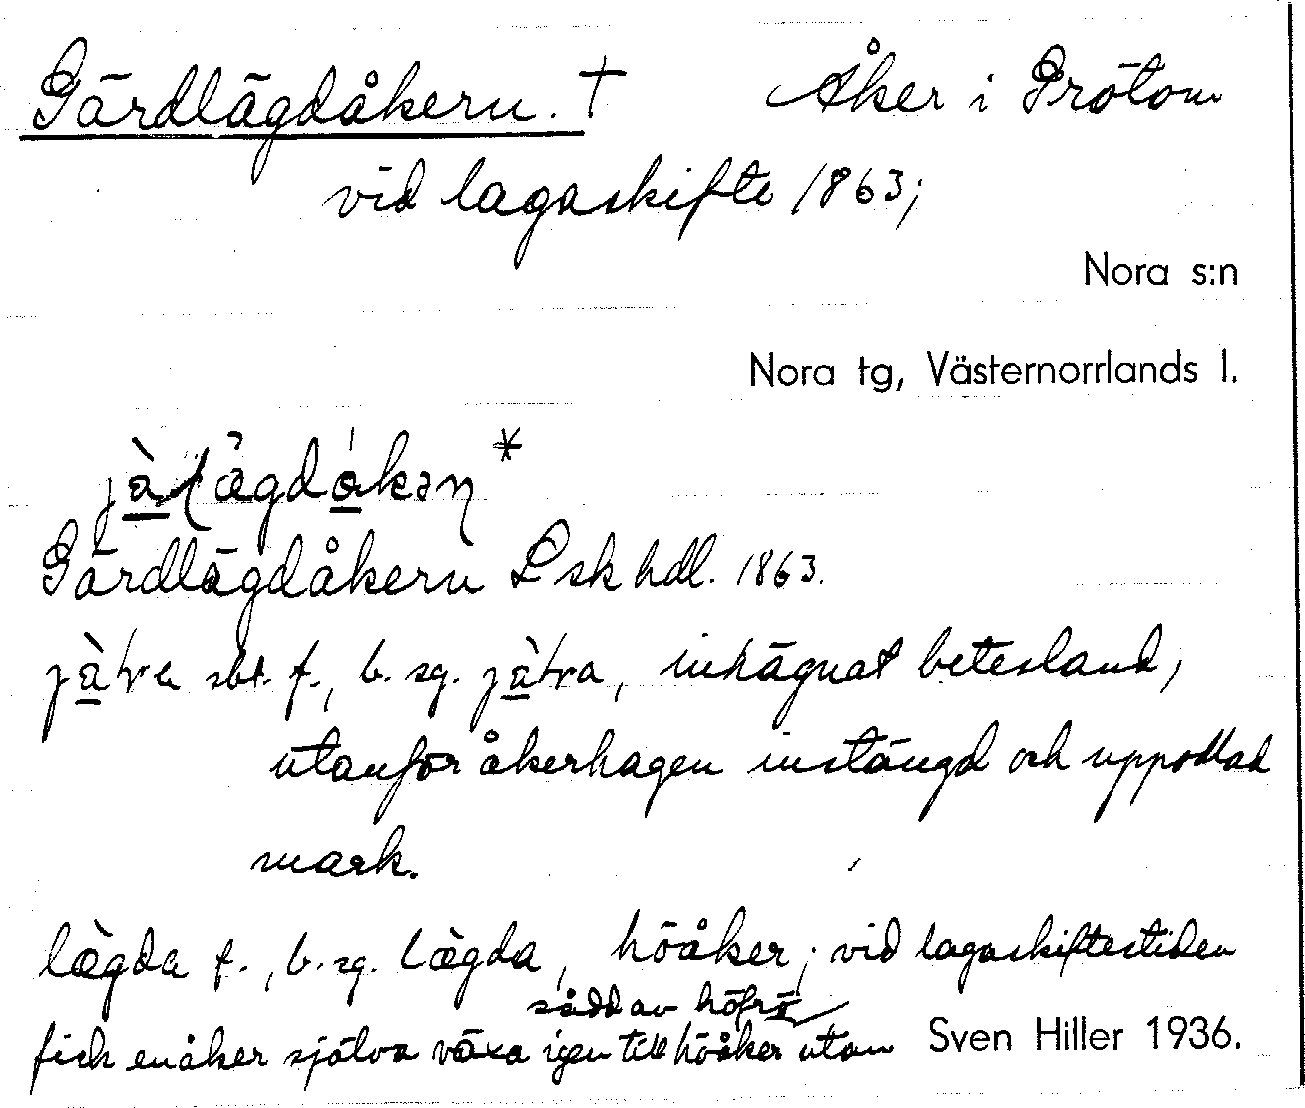 Gärdlägdåkern. † Åker i Grötom
vid lagaskifte 1863;
Nora s:n
Nora tg, Västernorrlands l.
Gärdlägdåkern Lsk hdl. 1863.
sbt. f., b. sg. inhägnat betesland,
utanför åkerhagen instängd och uppodlad
mark.
lægda f., b. sg. lægda, höåker; vid lagaskiftestiden
sådd av höfrö
fick en åker själva växa igen till höåker utan
Sven Hiller 1936.